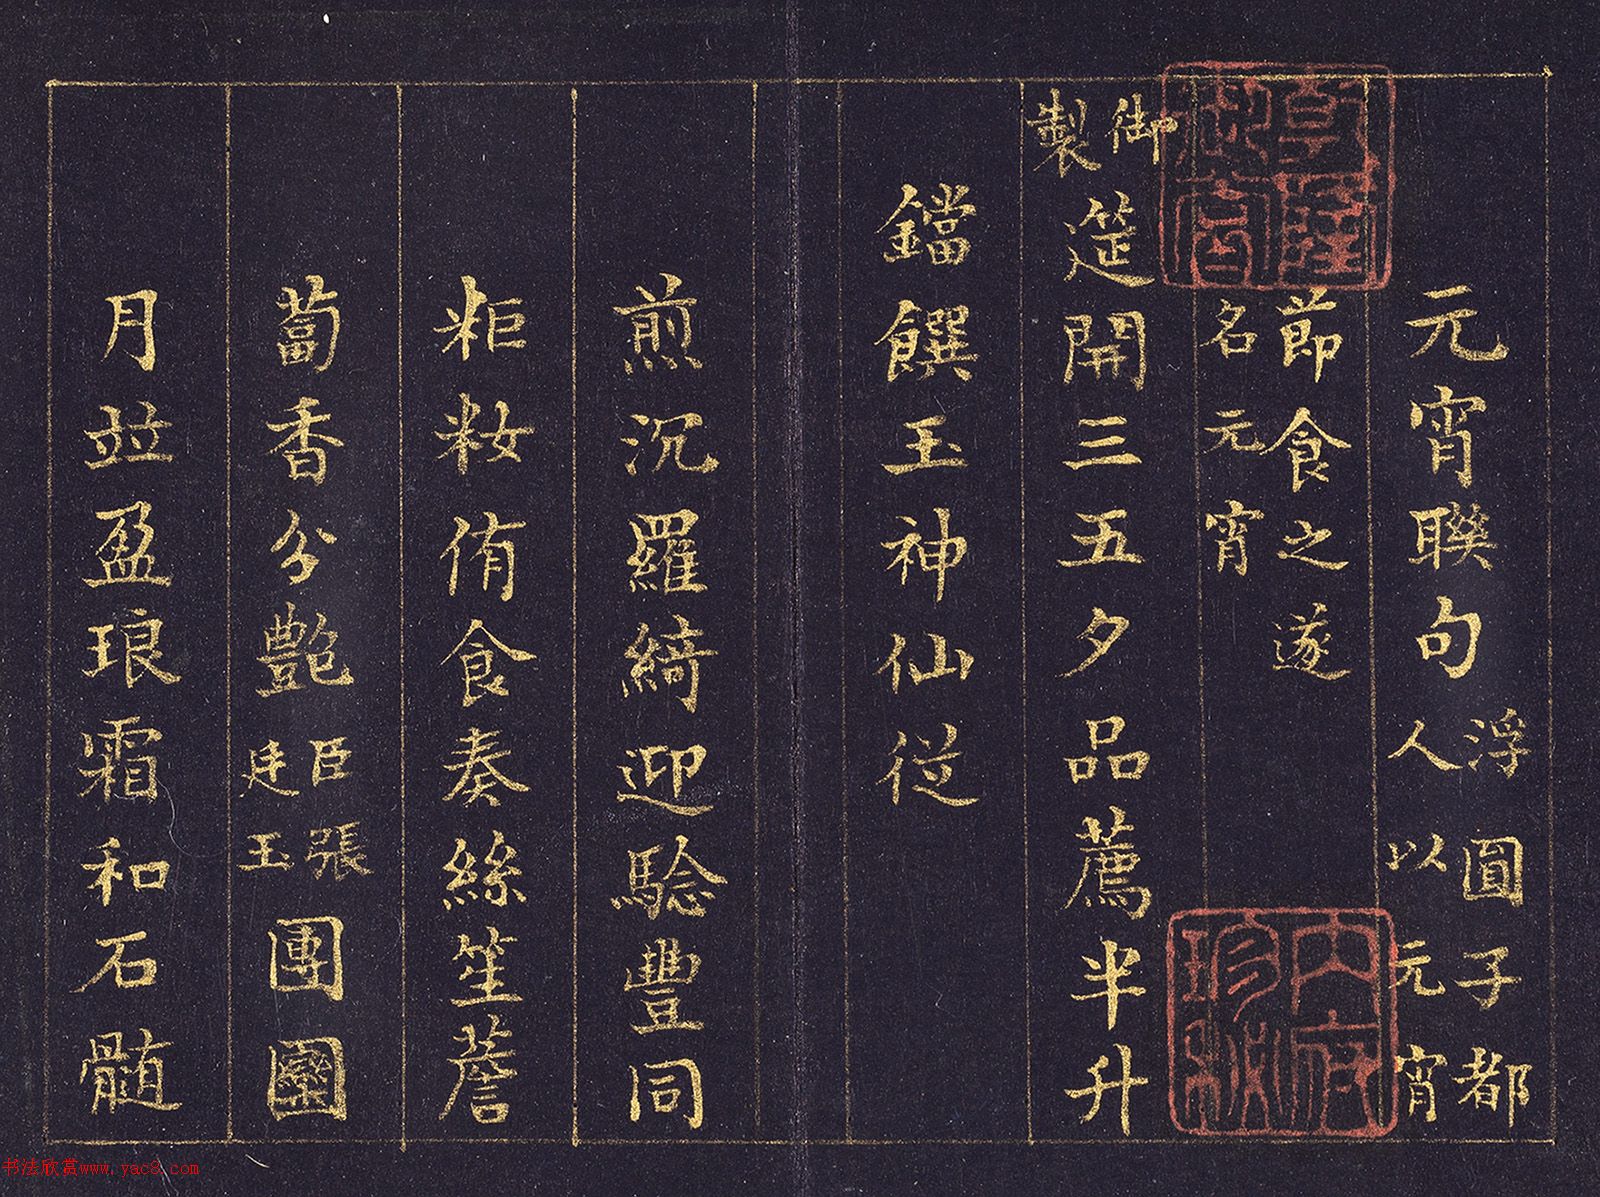 元宵聯句 浮圓子都人以元宵
節食之遂名元宵
御製 筵開三五夕品薦半升
鐺饌玉神仙從
煎沉羅綺迎驗豐同
粔籹侑食奏絲笙薝
蔔香分艷 臣張廷玉 團圞
月並盈琅霜和石髓
乾隆御覽之寶
內府珍祕
书法欣赏www.yac8.com